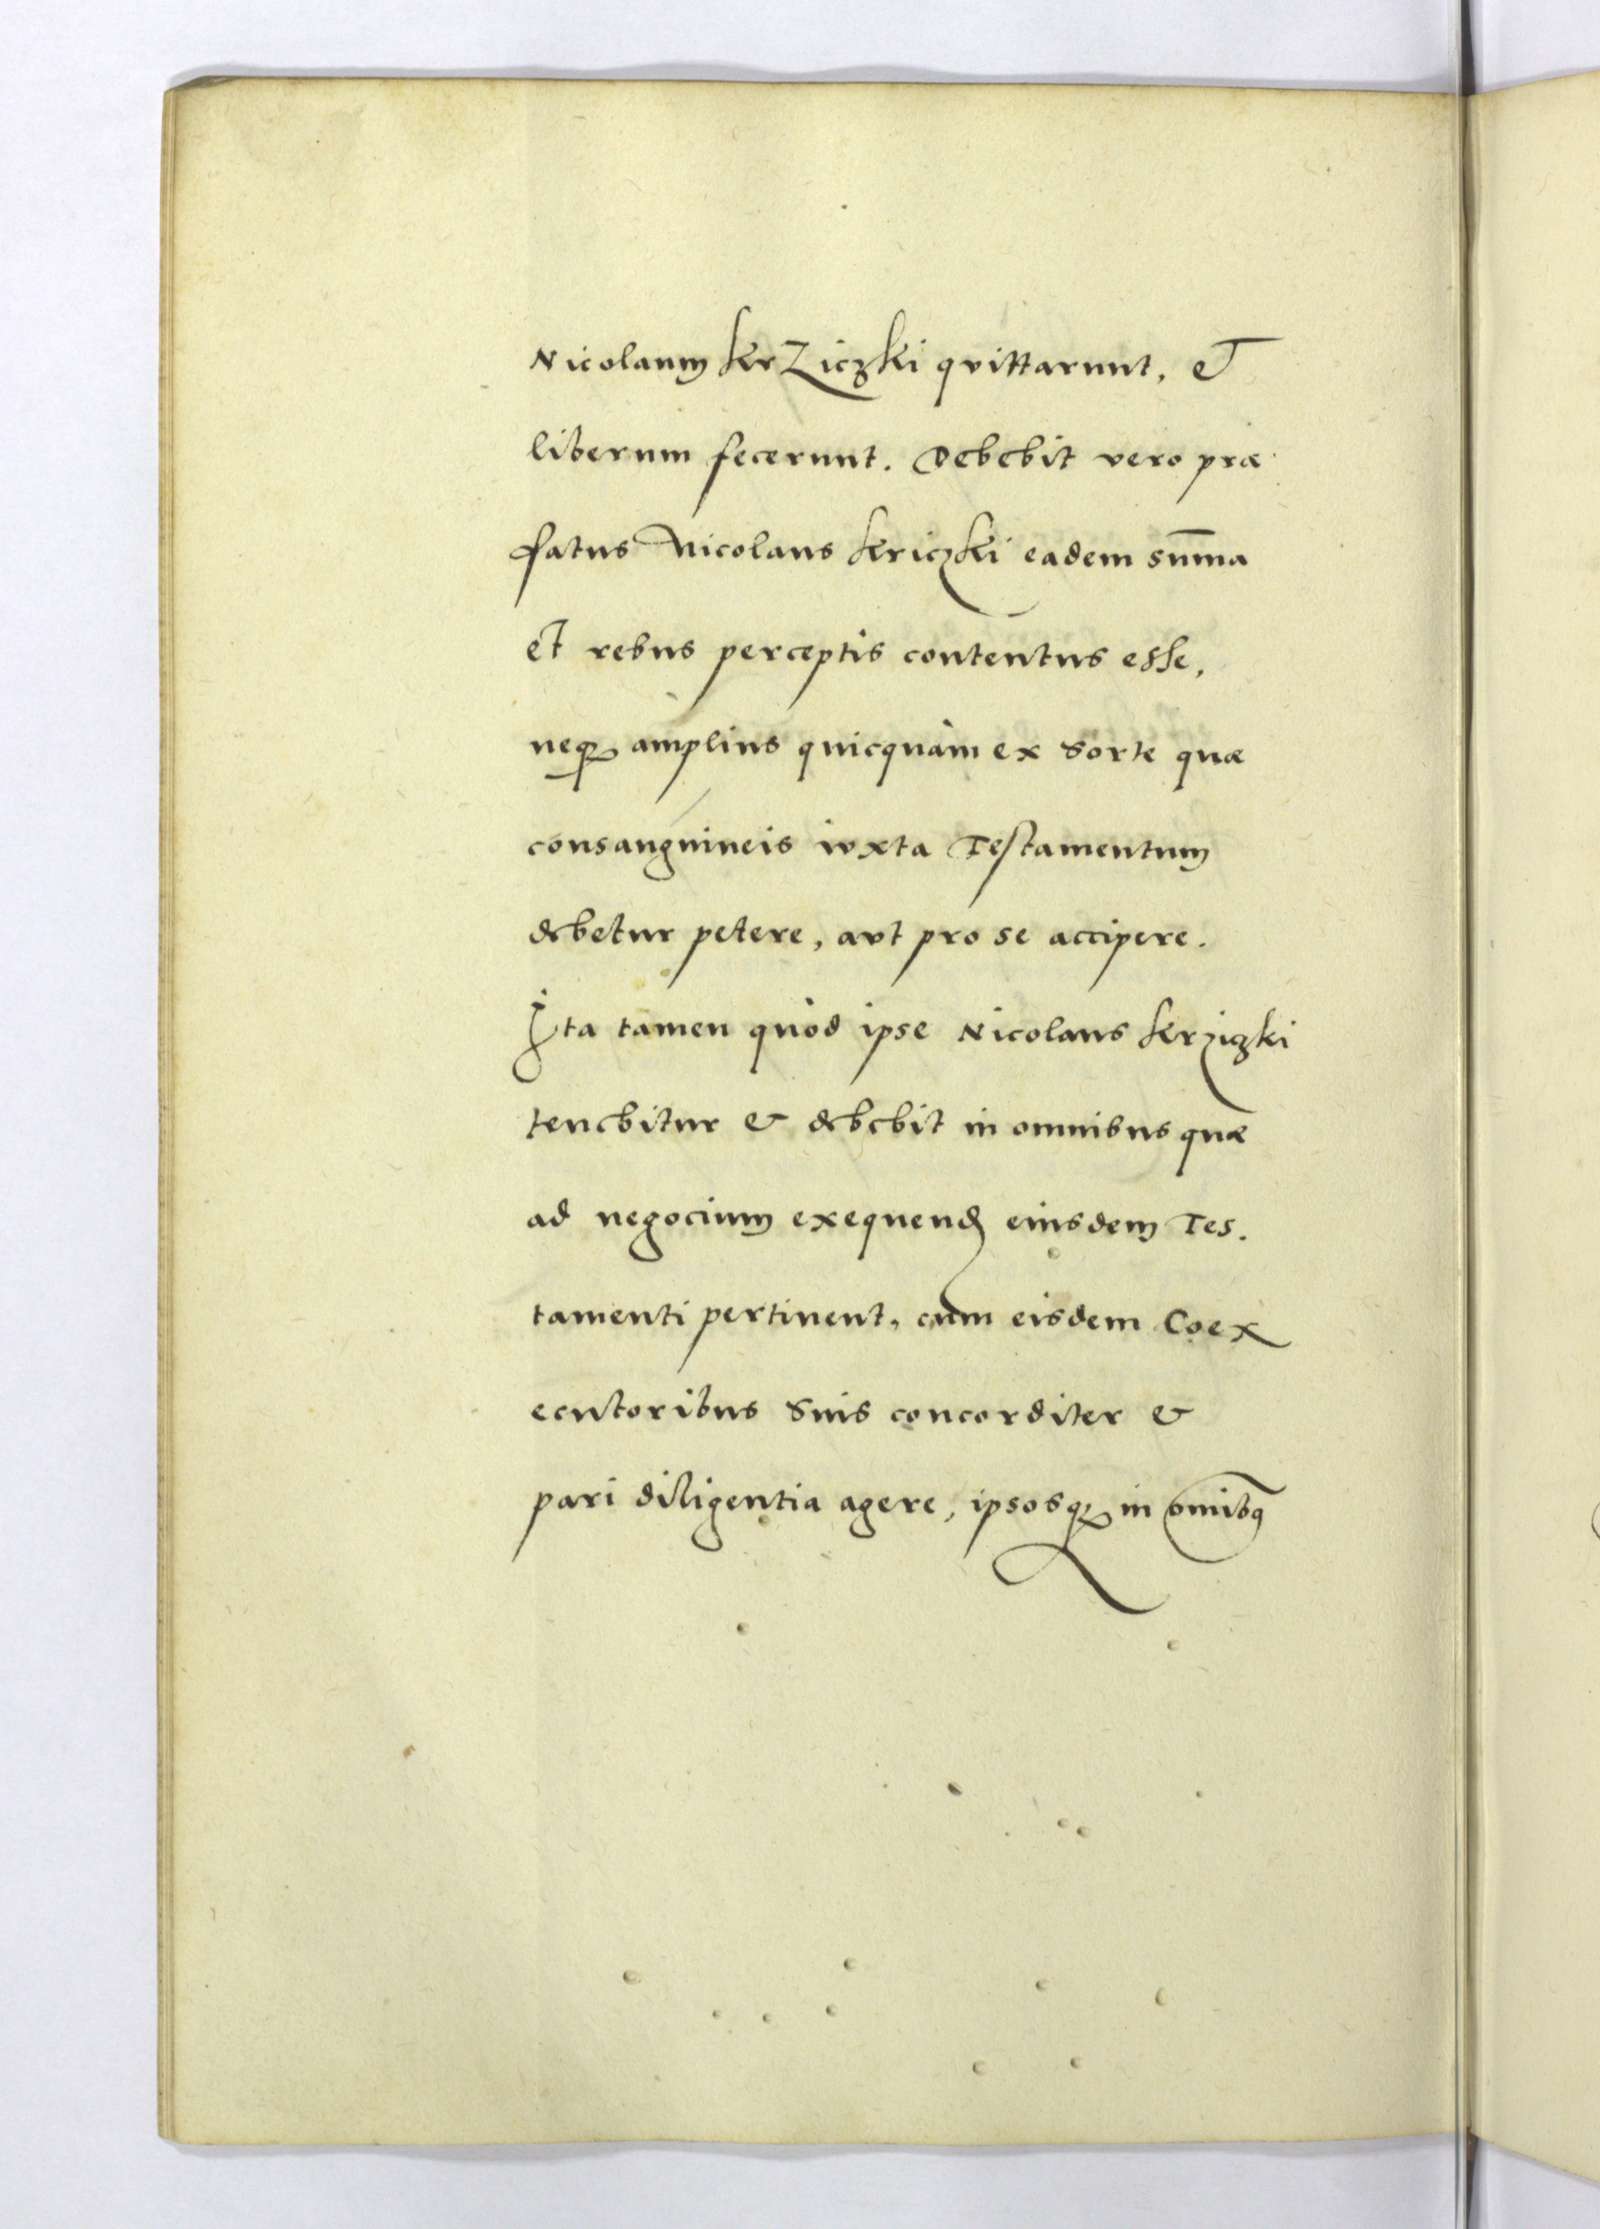 Nicolaum KrZiczki qvittarunt, et
liberum fecerunt. Debebit vero præ
fatus Nicolaus Kriczki eadem sum̄a
et rebus perceptis contentus esse,
neqꝫ amplius quicquàm ex Sorte quæ
consanguineis ivxta Testamentum
debetur petere, avt pro se accipere.
Ita tamen quòd ipse Nicolaus Krziczki
tenebitur & debebit in omnibus quæ
ad negocium exequend eiusdem Tes.
tamenti pertinent, cum eisdem Coex
ecutoribus Suis concorditer &
pari diligentia agere, ipsosqꝫ in om̄ibꝰ